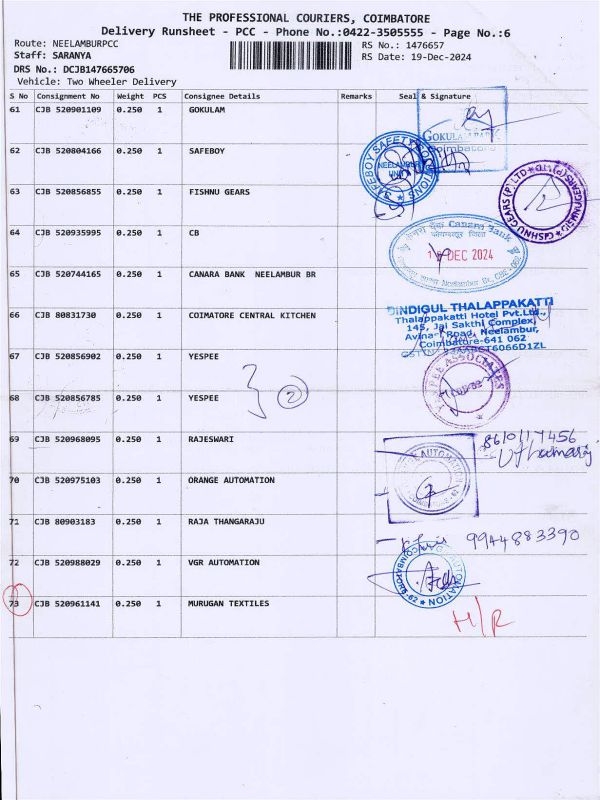 THE PROFESSIONAL COURIERS, COIMBATORE
Delivery Runsheet - PCC - Phone No.:0422-3505555 - Page No.:6
Route: NEELAMBURPCC
RS No.: 1476657
Staff: SARANYA
RS Date: 19-Dec-2024
DRS No.: DCJB147665706
Vehicle: Two Wheeler Delivery
S No Consignment No Weight PCS Consignee Details Remarks Seal & Signature
61 CJB 520901109 0.250 1 GOKULAM
GOKULAM PARK
Coimbatore
62 CJB 520804166 0.250 1 SAFEBOY
NEELAMBUR
UNIT
63 CJB 520856855 0.250 1 FISHNU GEARS
64 CJB 520935995 0.250 1 CB
Canara Bank
DEC 2024
65 CJB 520744165 0.250 1 CANARA BANK NEELAMBUR BR
66 CJB 80831730 0.250 1 COIMATORE CENTRAL KITCHEN
DINDIGUL THALAPPAKATTI
Thalappakatti Hotel Pvt.Ltd.,
145, Jai Sakthi Complex,
Road, Neelambur,
Coimbatore-641 062
67 CJB 520856902 0.250 1 YESPEE
2
68 CJB 520856785 0.250 1 YESPEE
69 CJB 520968095 0.250 1 RAJESWARI
8610117456
70 CJB 520975103 0.250 1 ORANGE AUTOMATION
71 CJB 80903183 0.250 1 RAJA THANGARAJU
9944883390
72 CJB 520988029 0.250 1 VGR AUTOMATION
73 CJB 520961141 0.250 1 MURUGAN TEXTILES
H/R